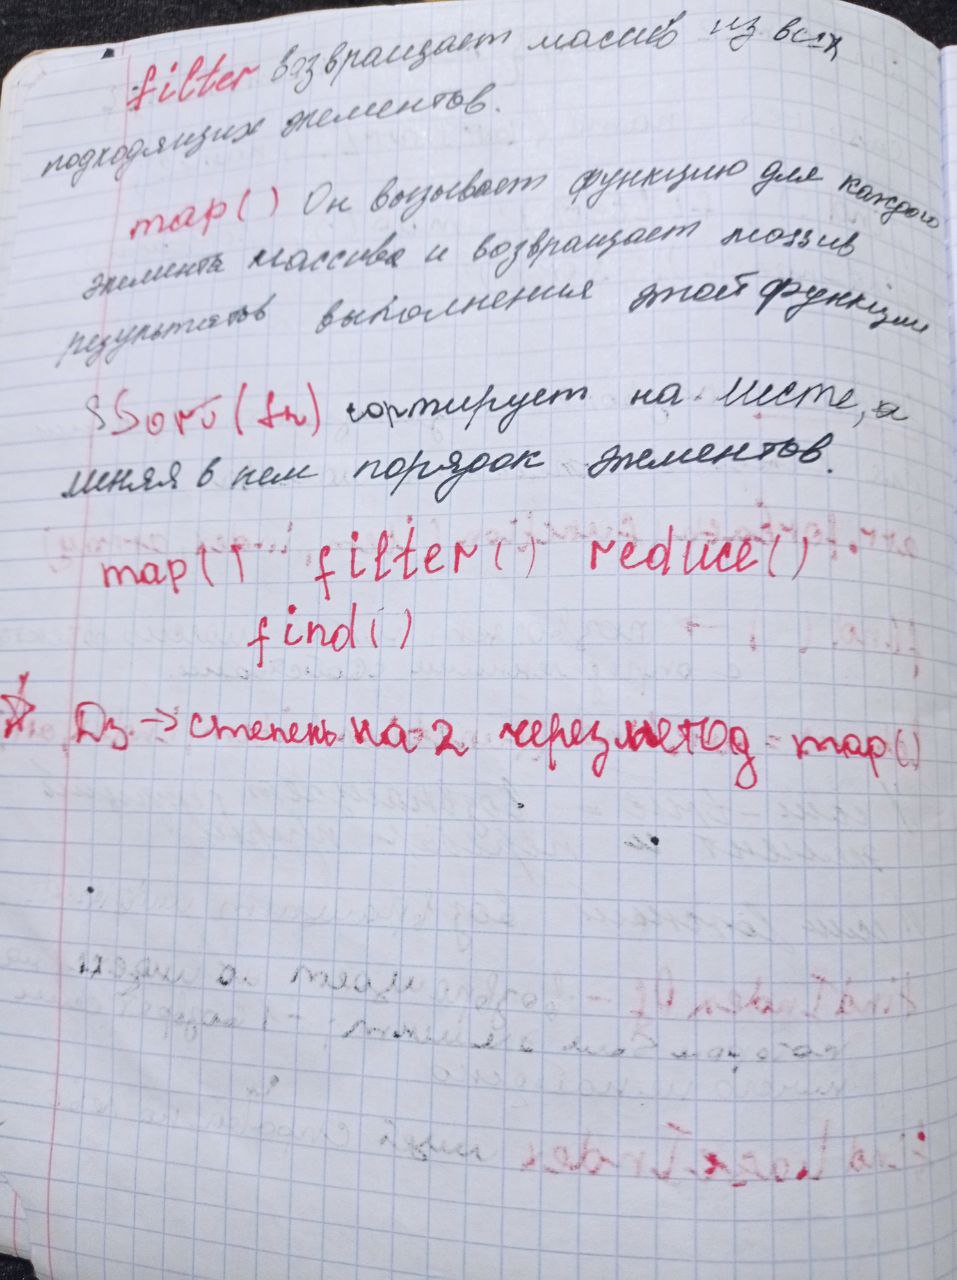 filter возвращает массив из всех
подходящих элементов.
map() Он вызывает функцию для каждого
элемента массива и возвращает массив
результатов выполнения этой функции
Sort(fn) сортирует на месте, а
меняя в нем порядок элементов.
map() filter() reduce()
find()
Дз → степень на 2 через метод map()